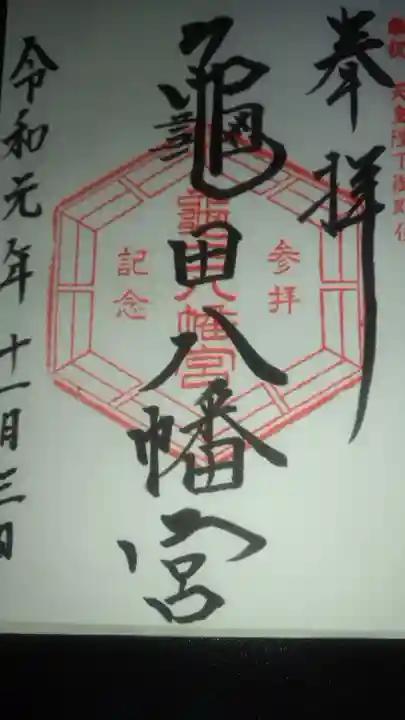 奉拝
天皇陛下御即位
龜田八幡宮
龜田八幡宮
参拝
記念
令和元年十一月三日